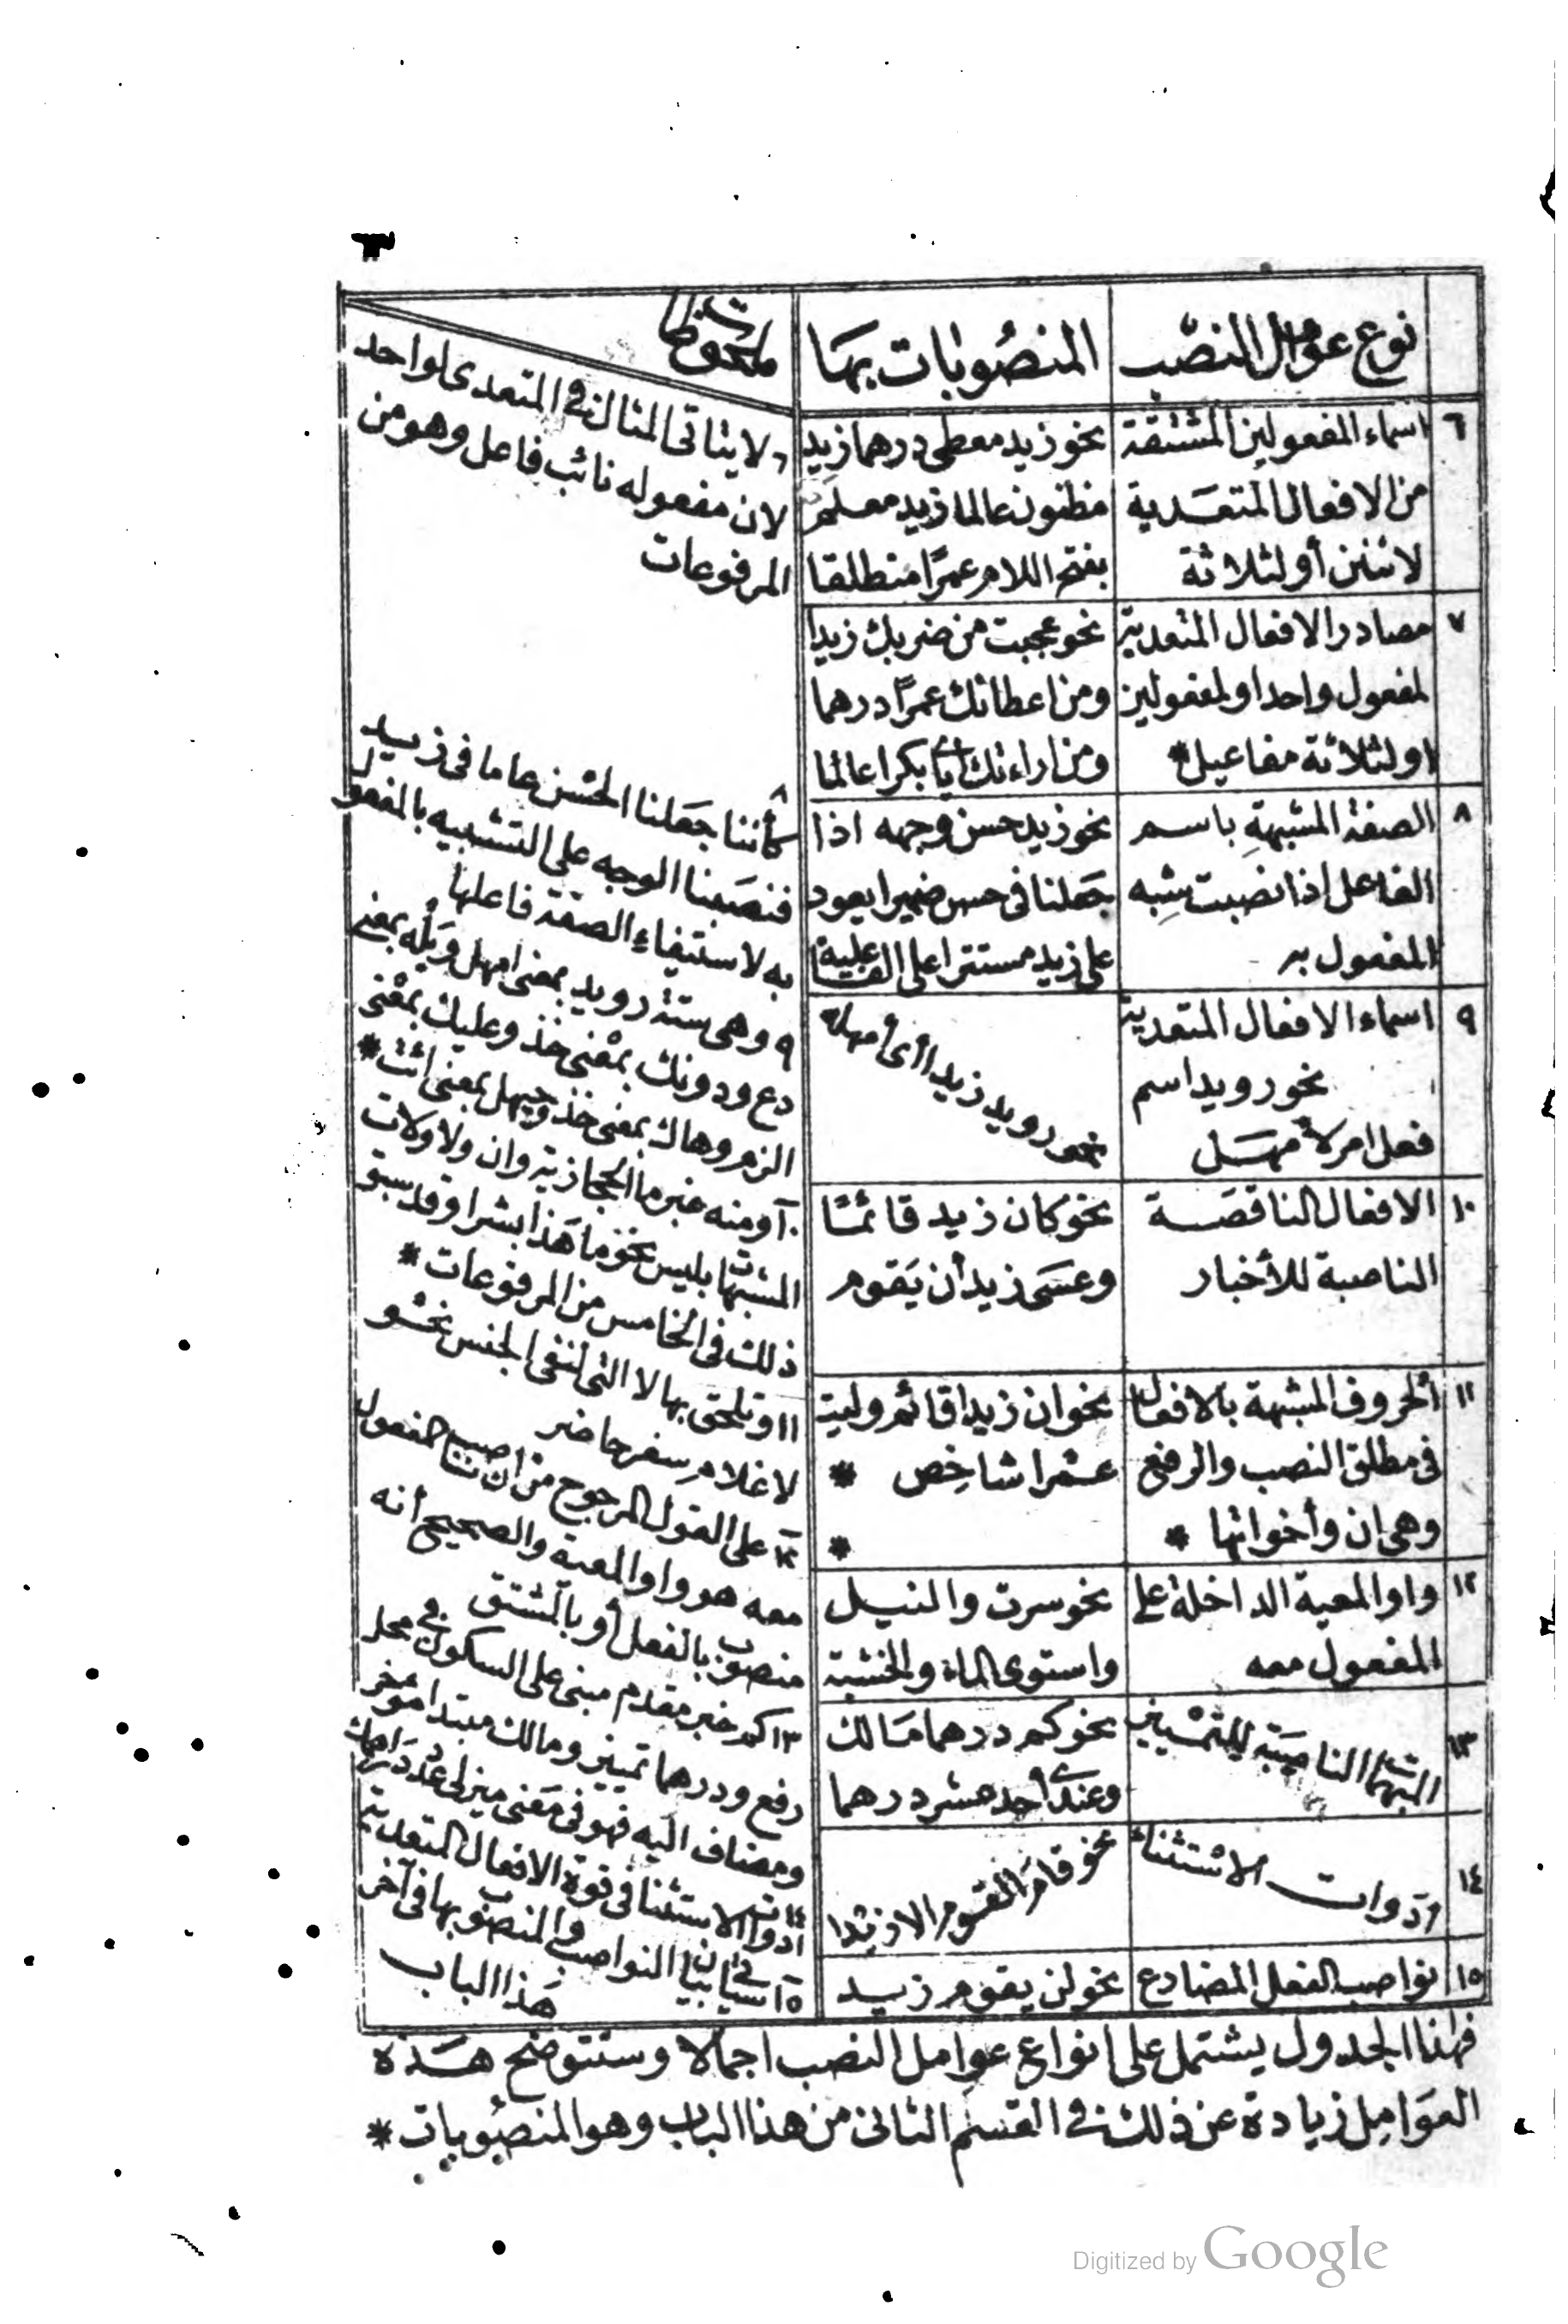 نوع عوامل النصب
المنصوبات بها
ملحوظات
٦
اسماء المفعولين المشتقة
من الافعال المتعدية
لاثنين أو لثلاثة
نحو زيد معطى درهما زيد
مظنون عالما زيد معلم
بفتح اللام عمرًا منطلقا
٦ لا يتاتى المثال في المتعدى لواحد
لان مفعوله نائب فاعل وهو من
المرفوعات
٧
مصادر الافعال المتعدية
لمفعول واحد او لمفعولين
او لثلاثة مفاعيل *
نحو عجبت من ضربك زيدا
ومن اعطائك عمرًا درهما
ومن اراءتك بكرا عالما
٨
الصفة المشبهةِ باسم
الفاعل اذا نصبت شِبه
المفعول به
نحو زيد حسن وجهه اذا
جعلنا فى حسن ضميرا يعود
على زيد مستترا على الفاعلية
٨ كأننا جَعلنا الحُسْن عاما فى زيد
فنصَبنا الوجه على التشبيه بالمفعول
به لاستيفاءِ الصفة فاعلها
٩
اسماء الافعال المتعدية
نحو رويد اسم
فعل امر لأمهَل
نحو رويد زيدا أى أمهله
٩ وهى ستة رويد بمعنى امهل وبَلْه بمعنى
دع ودونك بمعْنى خذ وعليك بمعْنى
الزم وهاك بمعنى خذ وحيهل بمعنى ائت *
١٠
الافعال الناقصَة
الناصبة للأخبار
نحو كان زيد قائمًا
وعسَى زيد أن يَقوم
١٠ ومنه خبر ما الحجازية وان ولا ولات
المشبهات بليس نحو ما هَذا بشرا وقد سبق
ذلك فى الخامس من المرفوعات *
١١
ألحروف المشبهة بالافعال
فى مطلق النصب والرفع
وهى ان وأخواتها *
نحو ان زيدا قائم وليت
عمرا شاخِص *
*
١١ ويلحق بها لا التى لنفى الجنس نحو
لا غلام سفر حاضر
١٢
واو المعية الداخلة على
المفعول معه
نحو سرت والنيل
واستوى الماء والخشبة
١٢ على القول المرجوح من ان ناصب المفعول
معه هو واو المعية والصحيح أنه
منصوب بالفعل أو بالمشتق
١٣
المبهمات الناصبَة للتمْييز
نحو كم درهما مَالك
وعندى أحد عشر درهما
١٣ كم خبر مقدم مبنى على السكون في محل
رفع ودرهما تمييز ومالك مبتدا مؤخر
ومضاف اليه فهو فى مَعْنى ميز لى عَدد دَراهمك
١٤
أدوات الاستثناء
نحو قامَ القوم الا زيْدا
١٤ أدوات الاستثنا فى قوة الافعال المتعدية
١٥
نواصب الفعل المضارع
نحو لن يقوم زيد
١٥ سيأتى بيان النواصب والمنصوب بها فى آخر
هَذا الباب
فهذا الجدول يشتمل على انواع عوامل النصب اجمالا وستتوضح هَذه
العوَامِل زيادة عن ذلك في القسم الثانى من هذا الباب وهو المنصُوبات *
Digitized by Google